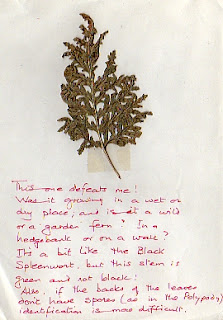 This one defeats me!
Was it growing in a wet or
dry place, and is it a wild
or a garden fern? In a
hedgebank or on a wall?
It's a bit like the Black
Spleenwort, but this stem is
green and not black!
Also, if the backs of the leaves
don't have spores (as in the Polypody)
identification is more difficult.